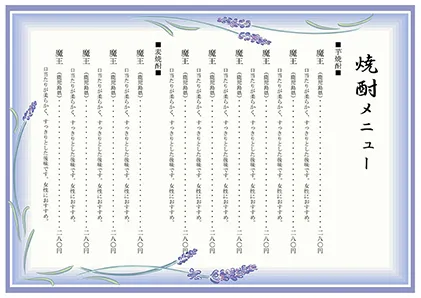 焼酎メニュー
■芋焼酎■
魔王 (鹿児島県)・・・・・・・・・・・・・・・・・・・・二八〇円
口当たりが柔らかく、すっきりとした後味です。女性におすすめ。
魔王 (鹿児島県)・・・・・・・・・・・・・・・・・・・・二八〇円
口当たりが柔らかく、すっきりとした後味です。女性におすすめ。
魔王 (鹿児島県)・・・・・・・・・・・・・・・・・・・・二八〇円
口当たりが柔らかく、すっきりとした後味です。女性におすすめ。
魔王 (鹿児島県)・・・・・・・・・・・・・・・・・・・・二八〇円
口当たりが柔らかく、すっきりとした後味です。女性におすすめ。
魔王 (鹿児島県)・・・・・・・・・・・・・・・・・・・・二八〇円
口当たりが柔らかく、すっきりとした後味です。女性におすすめ。
魔王 (鹿児島県)・・・・・・・・・・・・・・・・・・・・二八〇円
口当たりが柔らかく、すっきりとした後味です。女性におすすめ。
■麦焼酎■
魔王 (鹿児島県)・・・・・・・・・・・・・・・・・・・・二八〇円
口当たりが柔らかく、すっきりとした後味です。女性におすすめ。
魔王 (鹿児島県)・・・・・・・・・・・・・・・・・・・・二八〇円
口当たりが柔らかく、すっきりとした後味です。女性におすすめ。
魔王 (鹿児島県)・・・・・・・・・・・・・・・・・・・・二八〇円
口当たりが柔らかく、すっきりとした後味です。女性におすすめ。
魔王 (鹿児島県)・・・・・・・・・・・・・・・・・・・・二八〇円
口当たりが柔らかく、すっきりとした後味です。女性におすすめ。